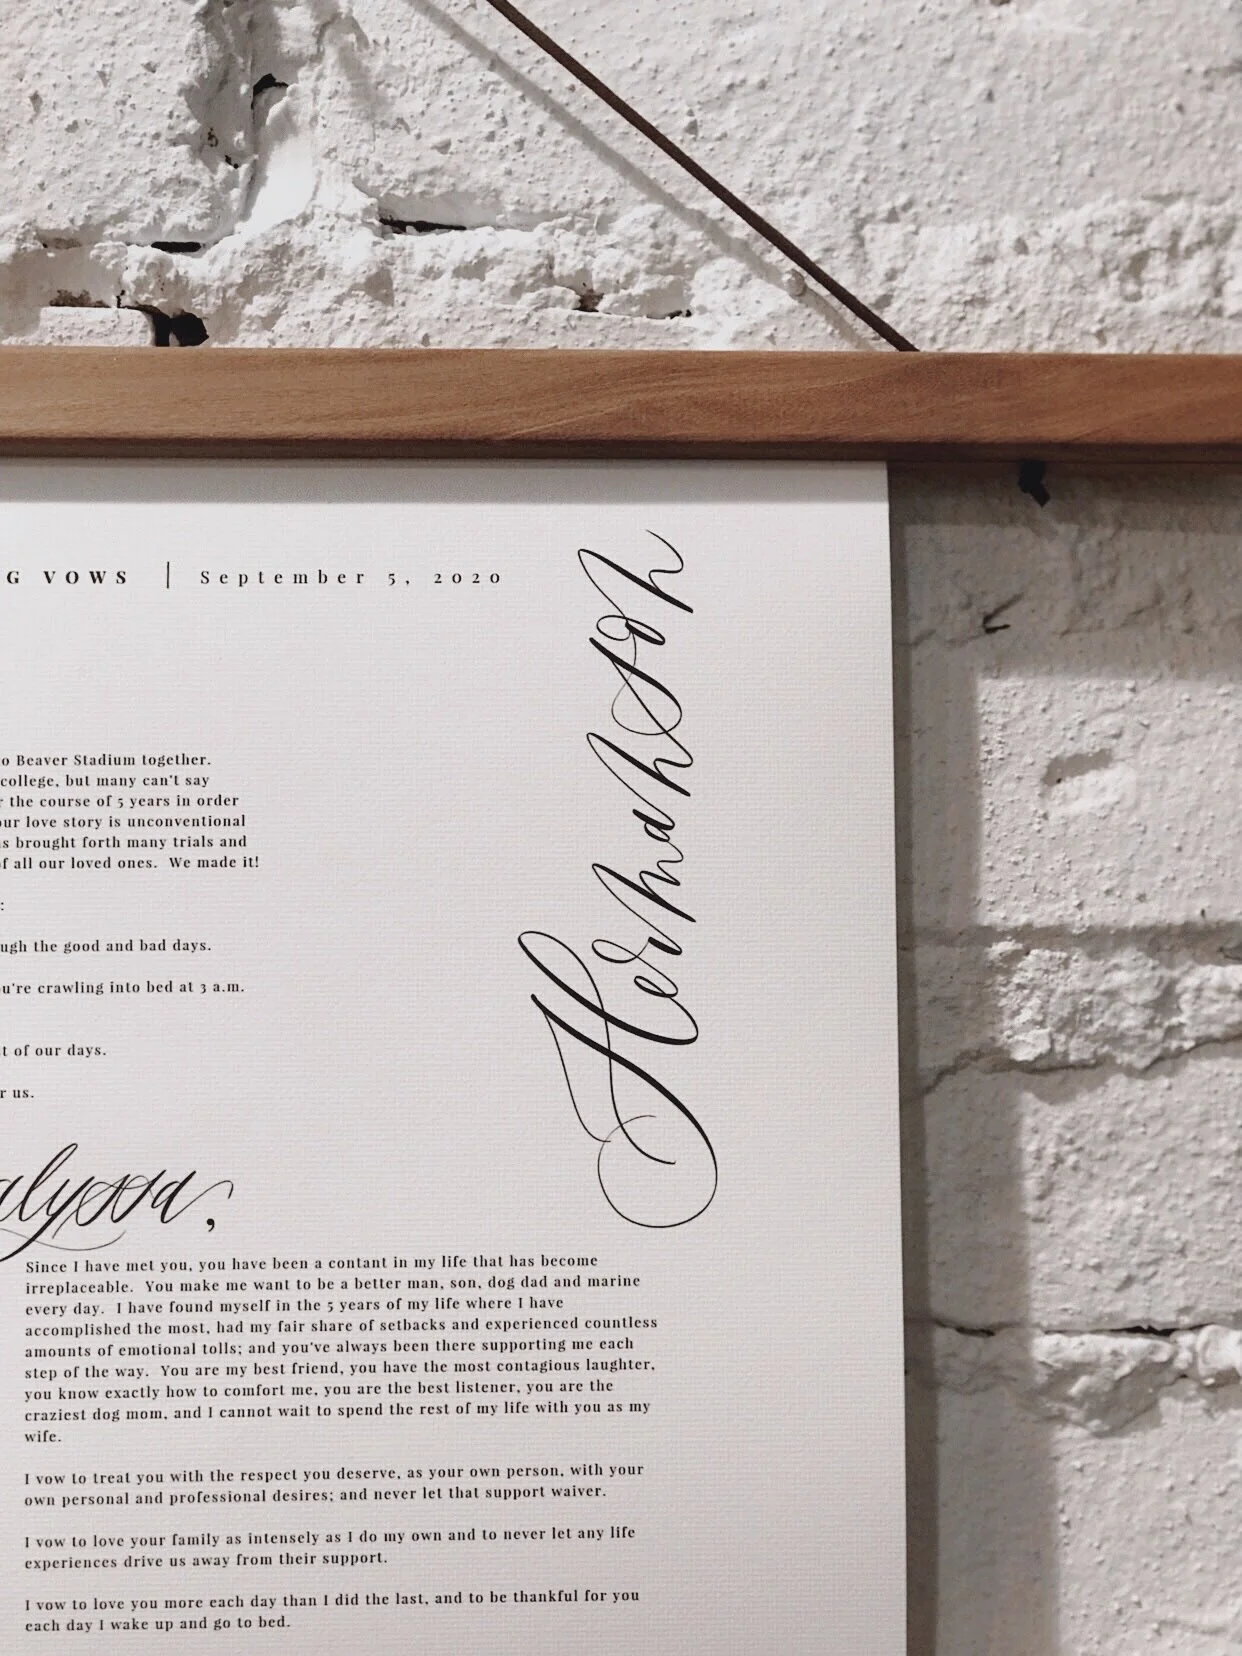 G VOWS | September 5, 2020
Hermanson
o Beaver Stadium together.
college, but many can't say
r the course of 5 years in order
our love story is unconventional
s brought forth many trials and
f all our loved ones. We made it!
:
ugh the good and bad days.
u're crawling into bed at 3 a.m.
t of our days.
r us.
alyssa,
Since I have met you, you have been a contant in my life that has become
irreplaceable. You make me want to be a better man, son, dog dad and marine
every day. I have found myself in the 5 years of my life where I have
accomplished the most, had my fair share of setbacks and experienced countless
amounts of emotional tolls; and you've always been there supporting me each
step of the way. You are my best friend, you have the most contagious laughter,
you know exactly how to comfort me, you are the best listener, you are the
craziest dog mom, and I cannot wait to spend the rest of my life with you as my
wife.
I vow to treat you with the respect you deserve, as your own person, with your
own personal and professional desires; and never let that support waiver.
I vow to love your family as intensely as I do my own and to never let any life
experiences drive us away from their support.
I vow to love you more each day than I did the last, and to be thankful for you
each day I wake up and go to bed.